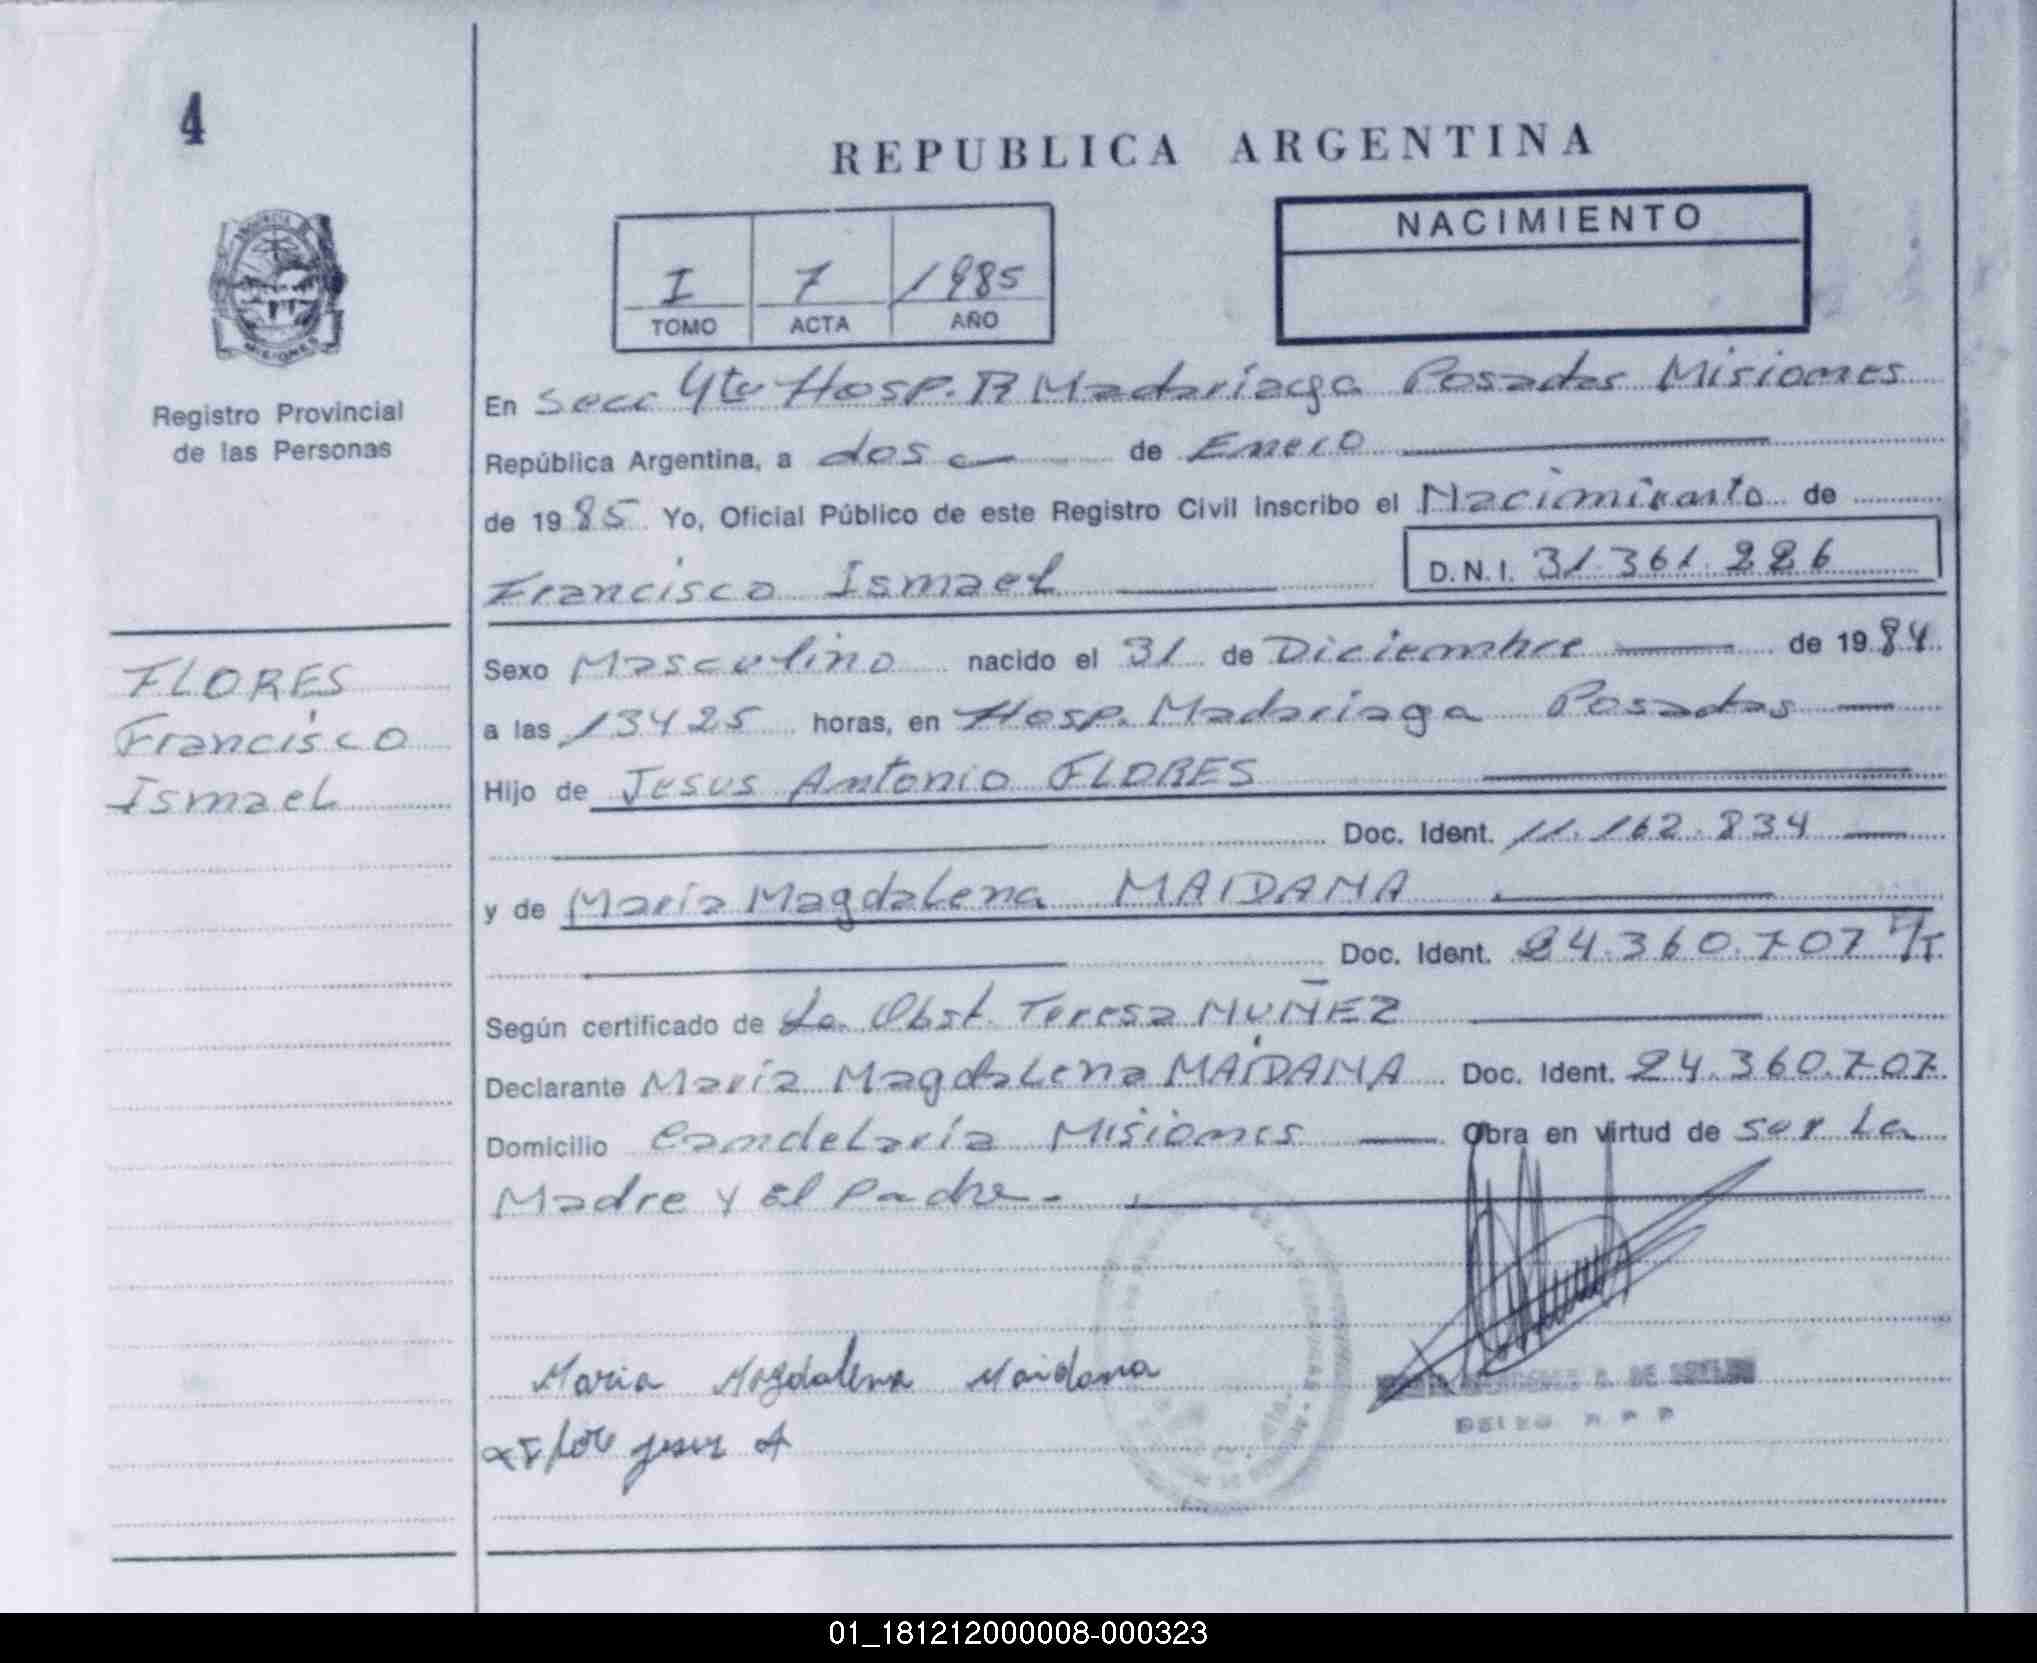 4
REPUBLICA ARGENTINA
NACIMIENTO
I 7 1985
TOMO ACTA AÑO
MISIONES
Registro Provincial
de las Personas
En Secc 4ta Hosp. R Madariaga Posadas Misiones
República Argentina, a dos de Enero
de 1985 Yo, Oficial Público de este Registro Civil Inscribo el Nacimiento de
Francisco Ismael D.N.I. 31.361.226
FLORES
Francisco
Ismael
Sexo Masculino nacido el 31 de Diciembre de 1984
a las 13y25 horas, en Hosp. Madariaga Posadas
Hijo de Jesus Antonio FLORES
Doc. Ident. 11.162.834
y de María Magdalena MAIDANA
Doc. Ident. 24.360.707
Según certificado de La Obst. Teresa NUÑEZ
Declarante María Magdalena MAIDANA Doc. Ident. 24.360.707
Domicilio Candelaría Misiones Obra en virtud de ser La
Madre y el Padre.
Maria Magdalena Maidana
Jesus A
01_181212000008-000323